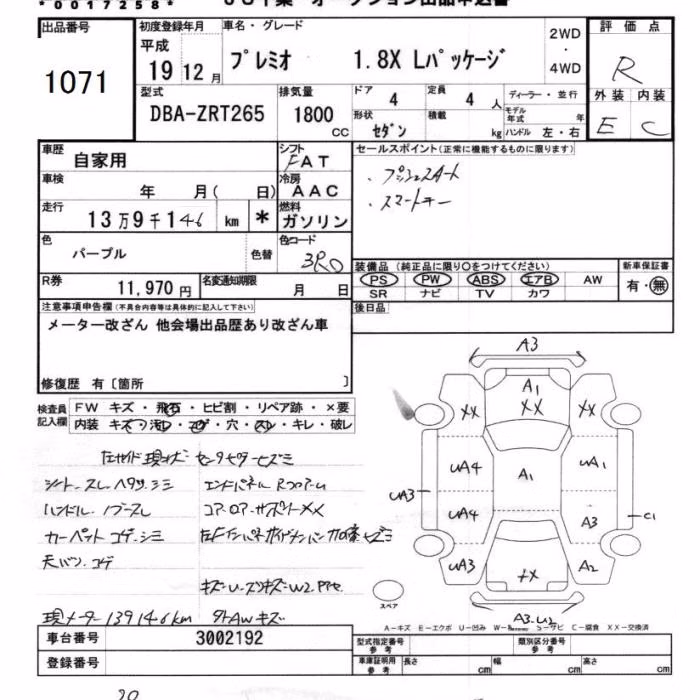 *00172258*
出品番号
1071
初度登録年月
平成
19 12 月
車名・グレード
プレミオ 1.8X Lパッケージ
2WD
・
4WD
評価点
R
外装 内装
E C
型式
DBA-ZRT265
排気量
1800
CC
ドア 4
定員 4 人
ディーラー・並行
形状 セダン
積載 kg
モデル年式 年
ハンドル 左・右
車歴
自家用
シフト
FAT
車検
年 月( 日)
冷房
AAC
走行
13万9千146 km *
燃料
ガソリン
色
パープル
色替
色コード
3R0
R券
11,970 円
名変通知期限
月 日
セールスポイント(正常に機能するものに限ります)
・プッシュスタート
・スマートキー
装備品(純正品に限り○をつけてください)
PS PW ABS エアB AW
SR ナビ TV カワ
新車保証書
有・無
後日品
注意事項申告欄(不具合内容等は具体的に記入して下さい)
メーター改ざん 他会場出品歴あり改ざん車
修復歴 有〔箇所 〕
検査員
記入欄
FW キズ・飛石・ヒビ割・リペア跡・×要
内装 キズ・汚レ・コゲ・穴・スレ・キレ・破レ
シート.スレ.ヘタリ.シミ
エンドパネル Rフロアーム
ハンドル.ノブスレ
コアロアーサポートXX
カーペット コゲ.シミ
天バリ.コゲ
現メーター 139146km
外AWキズ
A3
A1
XX
XX
XX
UA4
A1
UA1
UA3
UA4
A3
C1
UA3
XX
A2
A3.U2
スペア
A－キズ E－エクボ U－凹み S－サビ C－腐食 XX－交換済
車台番号
3002192
登録番号
型式指定番号
参考
類別区分番号
参考
車庫証明用
参考
長さ cm
幅 cm
高さ cm
20